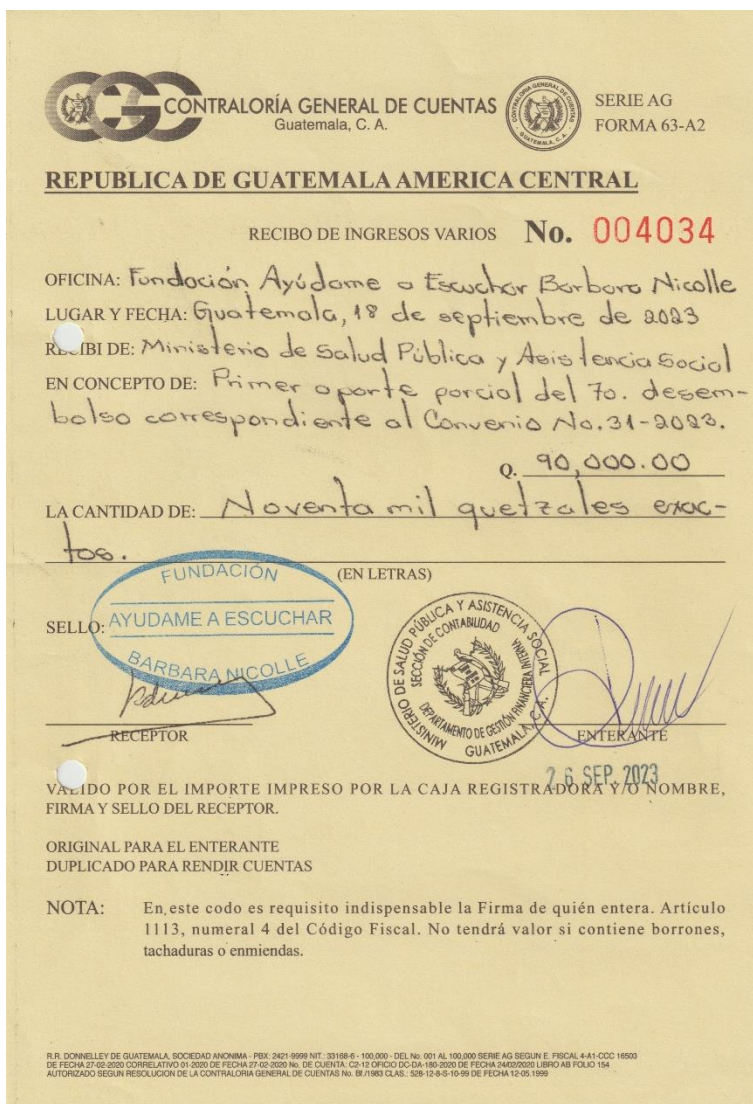 CONTRALORÍA GENERAL DE CUENTAS
Guatemala, C. A.
CONTRALORIA GENERAL DE CUENTAS
GUATEMALA, C. A.
SERIE AG
FORMA 63-A2
REPUBLICA DE GUATEMALA AMERICA CENTRAL
RECIBO DE INGRESOS VARIOS No. 004034
OFICINA: Fundación Ayúdame a Escuchar Barbara Nicolle
LUGAR Y FECHA: Guatemala, 18 de septiembre de 2023
RECIBI DE: Ministerio de Salud Pública y Asistencia Social
EN CONCEPTO DE: Primer aporte parcial del 7o. desem-
bolso correspondiente al Convenio No. 31-2023.
Q. 90,000.00
LA CANTIDAD DE: Noventa mil quetzales exac-
tos.
(EN LETRAS)
SELLO:
FUNDACIÓN
AYUDAME A ESCUCHAR
BARBARA NICOLLE
MINISTERIO DE SALUD PÚBLICA Y ASISTENCIA SOCIAL
SECCIÓN DE CONTABILIDAD
DEPARTAMENTO DE GESTIÓN FINANCIERA INTERNA
GUATEMALA, C.A.
RECEPTOR
ENTERANTE
26 SEP. 2023
VALIDO POR EL IMPORTE IMPRESO POR LA CAJA REGISTRADORA Y/O NOMBRE,
FIRMA Y SELLO DEL RECEPTOR.
ORIGINAL PARA EL ENTERANTE
DUPLICADO PARA RENDIR CUENTAS
NOTA: En este codo es requisito indispensable la Firma de quién entera. Artículo
1113, numeral 4 del Código Fiscal. No tendrá valor si contiene borrones,
tachaduras o enmiendas.
R.R. DONNELLEY DE GUATEMALA, SOCIEDAD ANONIMA - PBX: 2421-9999 NIT.: 33168-6 - 100,000 - DEL No. 001 AL 100,000 SERIE AG SEGUN E. FISCAL 4-A1-CCC 16503
DE FECHA 27-02-2020 CORRELATIVO 01-2020 DE FECHA 27-02-2020 No. DE CUENTA: C2-12 OFICIO DC-DA-180-2020 DE FECHA 24/02/2020 LIBRO AB FOLIO 154
AUTORIZADO SEGUN RESOLUCION DE LA CONTRALORIA GENERAL DE CUENTAS No. Bf./1983 CLAS.: 528-12-8-S-10-99 DE FECHA 12-05.1999